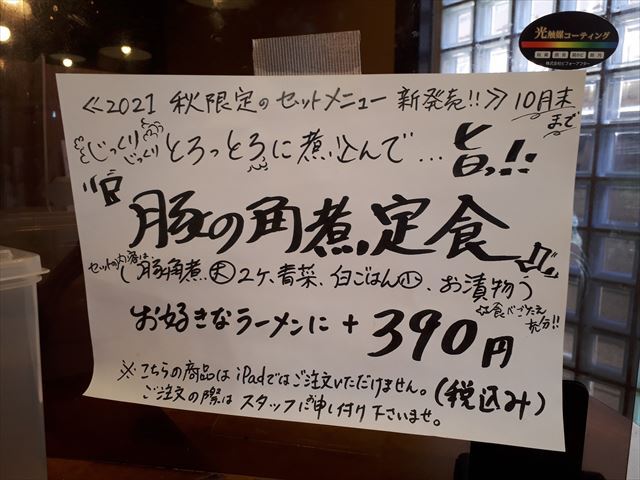 光触媒コーティング
株式会社ビフォーアフター
≪2021 秋限定のセットメニュー 新発売!!≫ 10月末まで
じっくりじっくりとろっとろに煮込んで…旨っ!!
豚の角煮定食
セットの内容は、
(豚角煮 大 2ヶ、青菜、白ごはん 小、お漬物)
☆食べごたえ充分!!
お好きなラーメンに + 390円
(税込み)
※こちらの商品は iPadではご注文いただけません。
ご注文の際は スタッフに申し付け下さいませ。